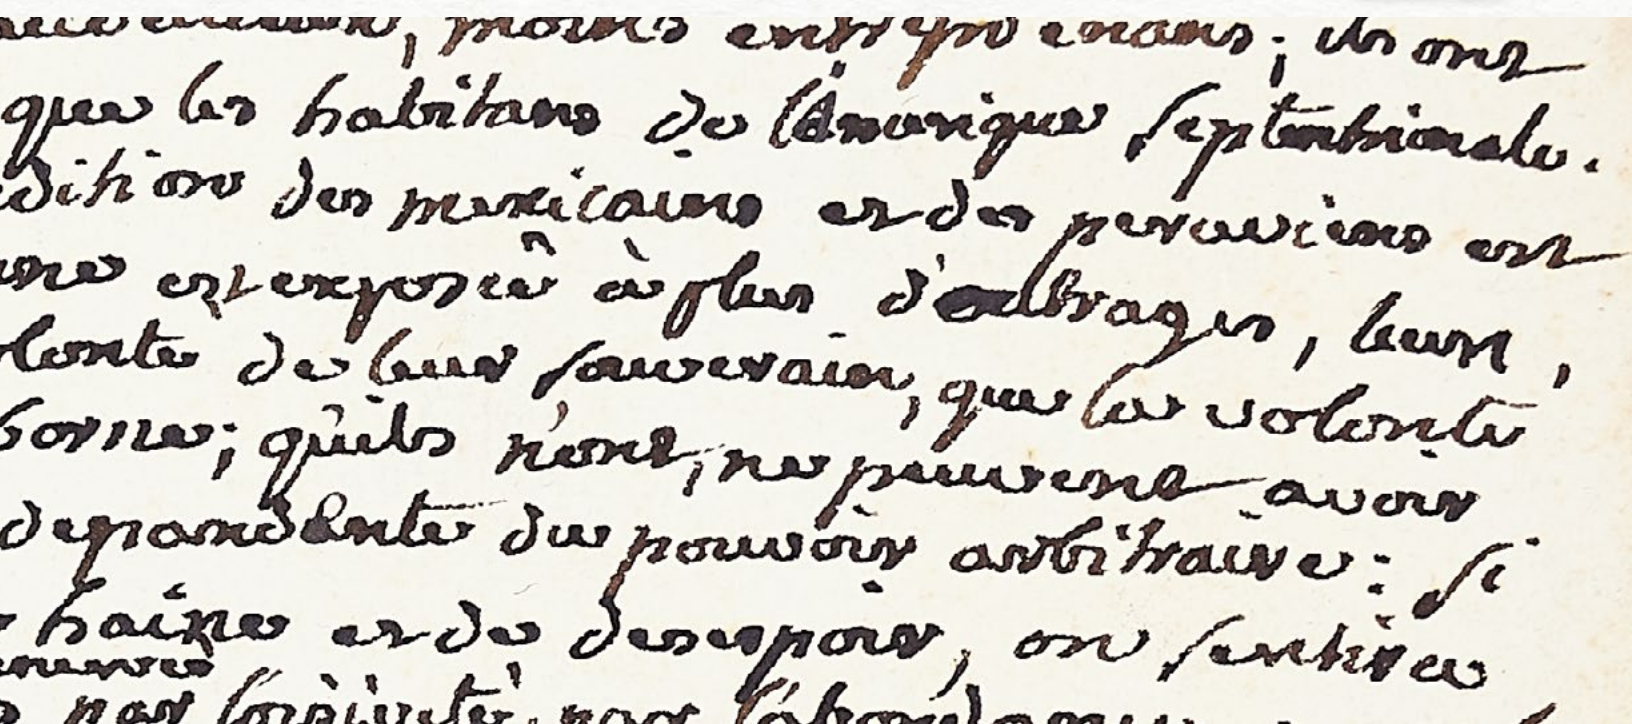 moins entreprenans; ils ont
que les habitans de l'Amerique septentrionale.
dition des mexicains et des peruviens est
une est exposée à plus d'outrages, leurs,
lonté de leur souverain, que la volonté
borne; qu'ils n'ont, ne peuvent avoir
dependante du pouvoir arbitraire: si
haine et de desespoir, on sentira
par l'oisiveté, par l'abondance